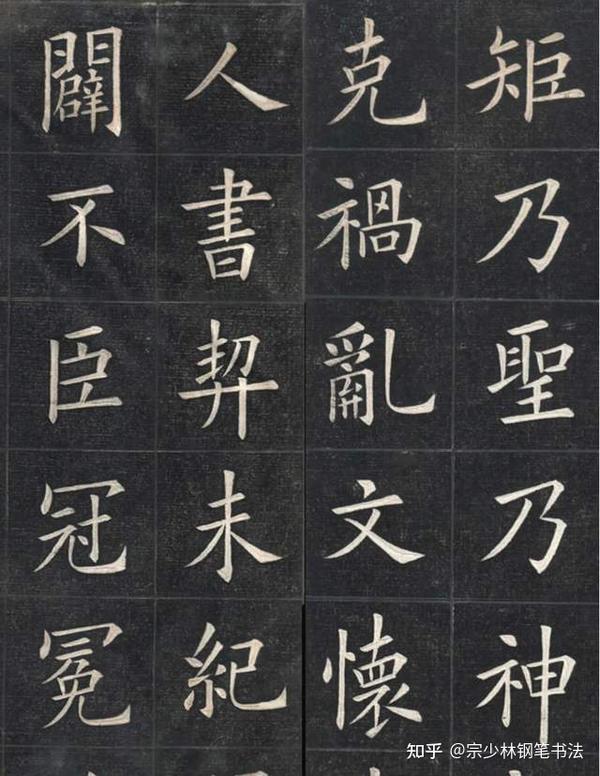 矩乃聖乃神
克禍亂文懷
人書契未紀
闢不臣冠冕
知乎 @宗少林钢笔书法